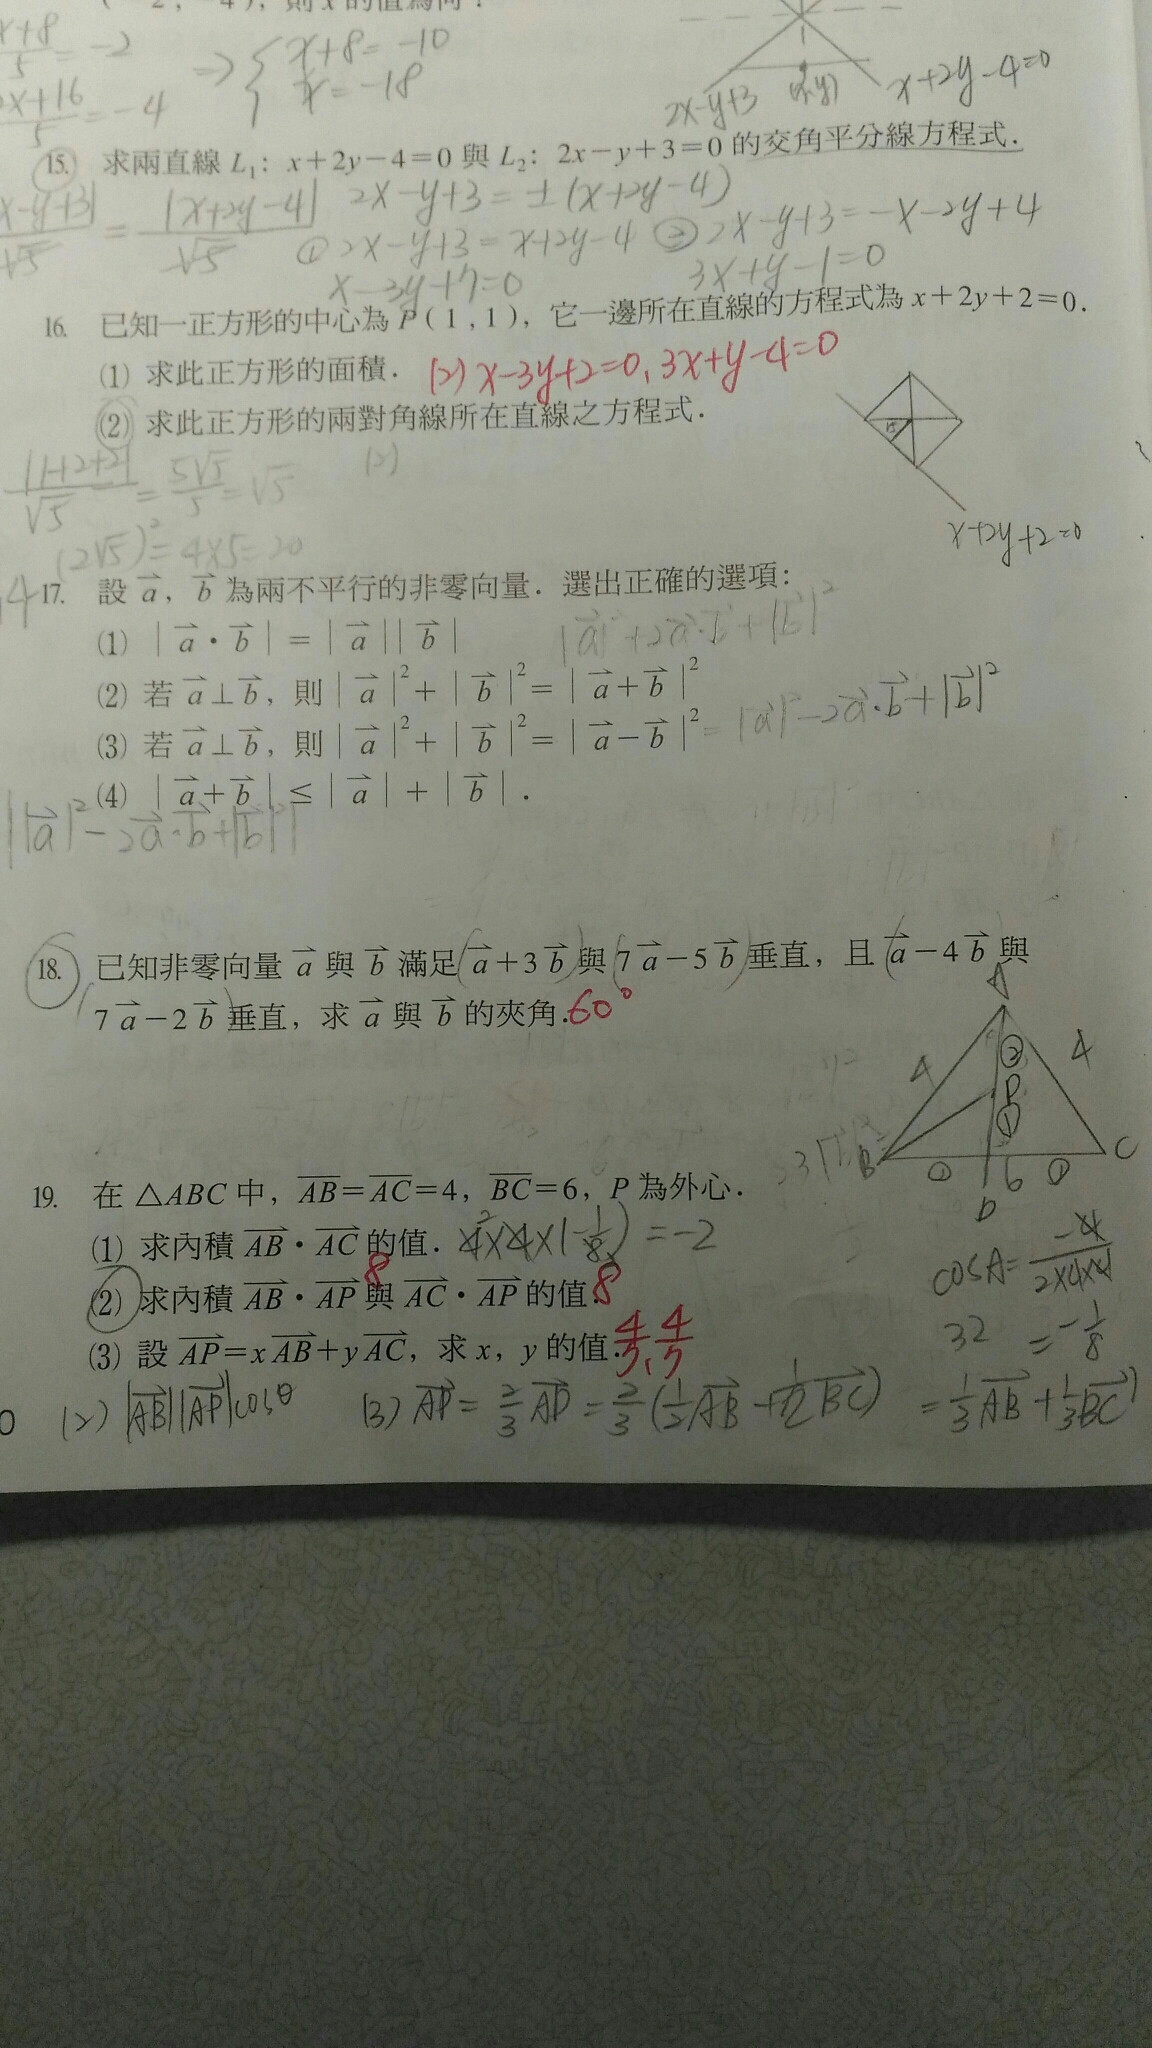 則 x 的值為何？
x+8/5 = -2 ⇒ { x+8 = -10
2x+16/5 = -4 x = -18
2x-y+3 (x,y) x+2y-4=0
15. 求兩直線 L₁：x+2y-4=0 與 L₂：2x-y+3=0 的交角平分線方程式．
|2x-y+3|/√5 = |x+2y-4|/√5 2x-y+3 = ±(x+2y-4)
① 2x-y+3 = x+2y-4 ② 2x-y+3 = -x-2y+4
x-3y+7=0 3x+y-1=0
16. 已知一正方形的中心為 P(1,1)，它一邊所在直線的方程式為 x+2y+2=0．
(1) 求此正方形的面積． (2) x-3y+2=0, 3x+y-4=0
(2) 求此正方形的兩對角線所在直線之方程式．
|1+2+2|/√5 = 5√5/5 = √5 (2)
(2√5)² = 4×5 = 20
x+2y+2=0
17. 設 a⃗，b⃗ 為兩不平行的非零向量．選出正確的選項：
(1) |a⃗·b⃗| = |a⃗||b⃗| |a⃗|²+2a⃗·b⃗+|b⃗|²
(2) 若 a⃗⊥b⃗，則 |a⃗|²+|b⃗|²=|a⃗+b⃗|²
(3) 若 a⃗⊥b⃗，則 |a⃗|²+|b⃗|²=|a⃗-b⃗|² = |a⃗|²-2a⃗·b⃗+|b⃗|²
(4) |a⃗+b⃗| ≤ |a⃗|+|b⃗|．
||a⃗|²-2a⃗·b⃗+|b⃗|²|
18. 已知非零向量 a⃗ 與 b⃗ 滿足(a⃗+3b⃗)與(7a⃗-5b⃗)垂直，且(a⃗-4b⃗)與
(7a⃗-2b⃗)垂直，求 a⃗ 與 b⃗ 的夾角．60°
A
4 ② 4
P
①
B ① 6 ① C
D
19. 在 △ABC 中，AB=AC=4，BC=6，P 為外心．
(1) 求內積 AB⃗·AC⃗ 的值． 4×4×(-1/8) = -2
cosA = -4/2×4×4
32 = -1/8
(2) 求內積 AB⃗·AP⃗ 與 AC⃗·AP⃗ 的值． 8 8
(3) 設 AP⃗=xAB⃗+yAC⃗，求 x，y 的值．
(2) |AB⃗||AP⃗|cosθ (3) AP⃗ = 2/3 AD⃗ = 2/3(1/2 AB⃗ + 1/2 BC⃗) = 1/3 AB⃗ + 1/3 BC⃗